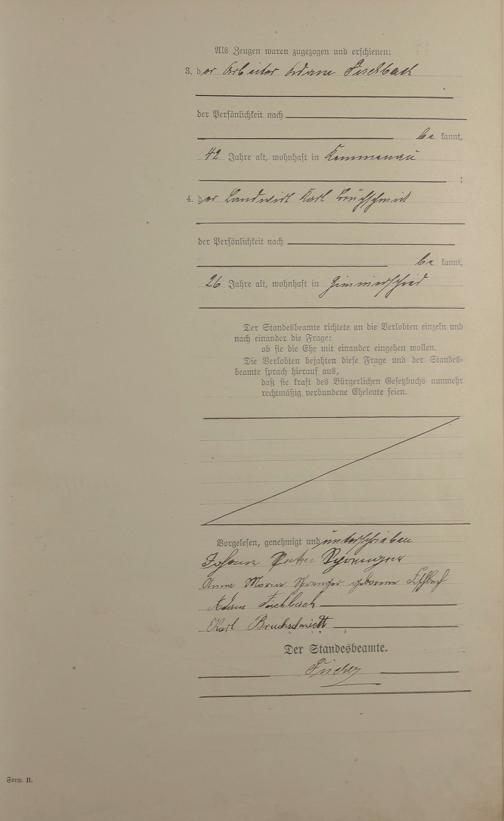 Als Zeugen waren zugezogen und erschienen:
3. der Arbeiter Adam Fischbach
der Persönlichkeit nach
be kannt,
42 Jahre alt, wohnhaft in Kemmenau
;
4. der Landwirt Karl
der Persönlichkeit nach
be kannt,
26 Jahre alt, wohnhaft in Zimmerschied
Der Standesbeamte richtete an die Verlobten einzeln und
nach einander die Frage:
ob sie die Ehe mit einander eingehen wollen.
Die Verlobten bejahten diese Frage und der Standes-
beamte sprach hierauf aus,
daß sie kraft des Bürgerlichen Gesetzbuchs nunmehr
rechtmäßig verbundene Eheleute seien.
Vorgelesen, genehmigt und unterschrieben
Johann Peter Sprenger
Anna Maria Sprenger geborene Fischbach
Adam Fischbach
Karl
Der Standesbeamte.
Form. B.